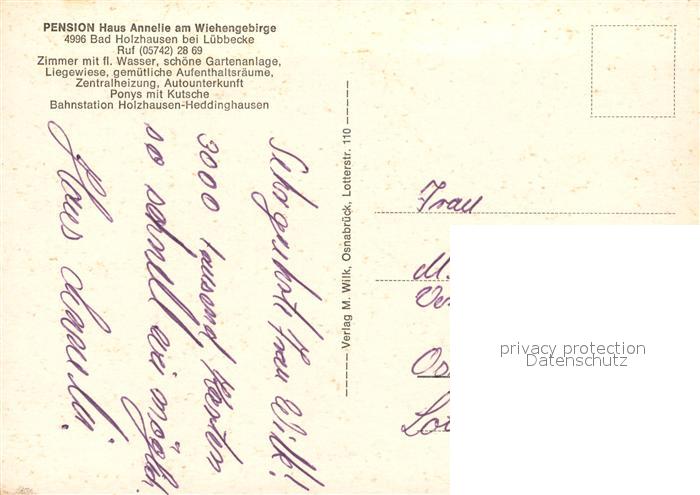 PENSION Haus Annelie am Wiehengebirge
4996 Bad Holzhausen bei Lübbecke
Ruf (05742) 28 69
Zimmer mit fl. Wasser, schöne Gartenanlage,
Liegewiese, gemütliche Aufenthaltsräume,
Zentralheizung, Autounterkunft
Ponys mit Kutsche
Bahnstation Holzhausen-Heddinghausen
Sehr geehrte Frau Wilk!
3000 tausend Karten
so schnell wie möglich.
Haus Anneli.
Verlag M. Wilk, Osnabrück, Lotterstr. 110
Frau
M.
privacy protection
Datenschutz